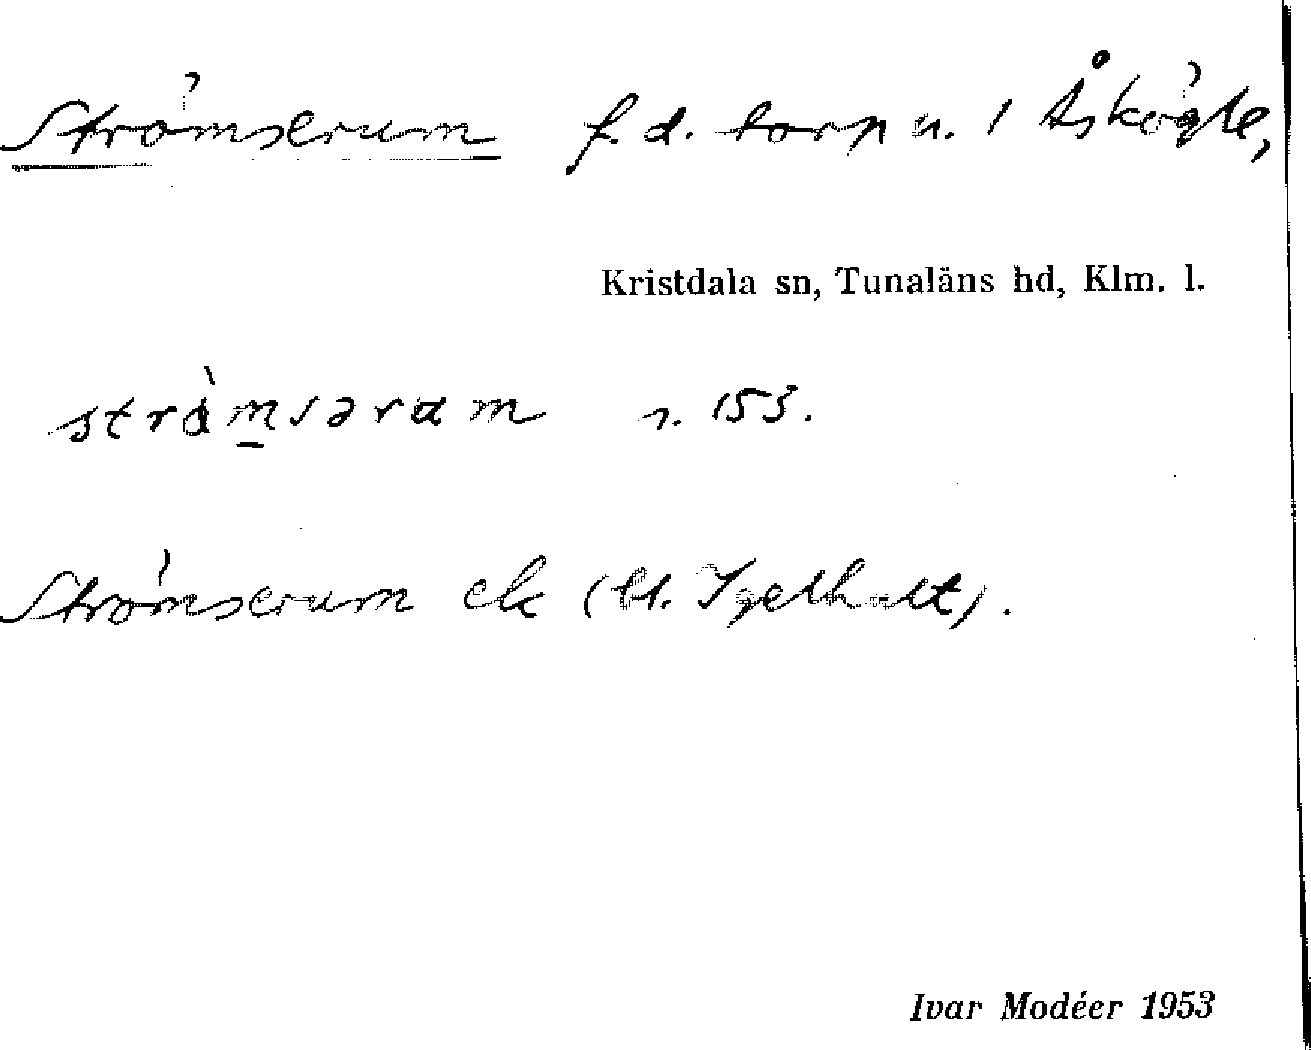 Strömserum f. d. torp u. 1 Åskögle,
Kristdala sn, Tunaläns hd, Klm. l.
strömsəram s. 153.
Strömserum ek (bl. Igelhult).
Ivar Modéer 1953